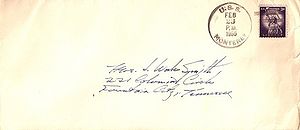 U.S.S.
FEB
23
P.M.
MONTEREY
Mrs. Smith
221 Colonial Circle
Fountain City, Tennessee